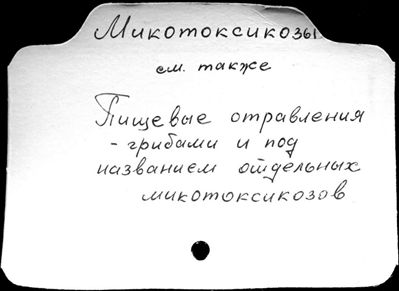 Микотоксикозы
см. также
Пищевые отравления
- грибами и под
названием отдельных
микотоксикозов